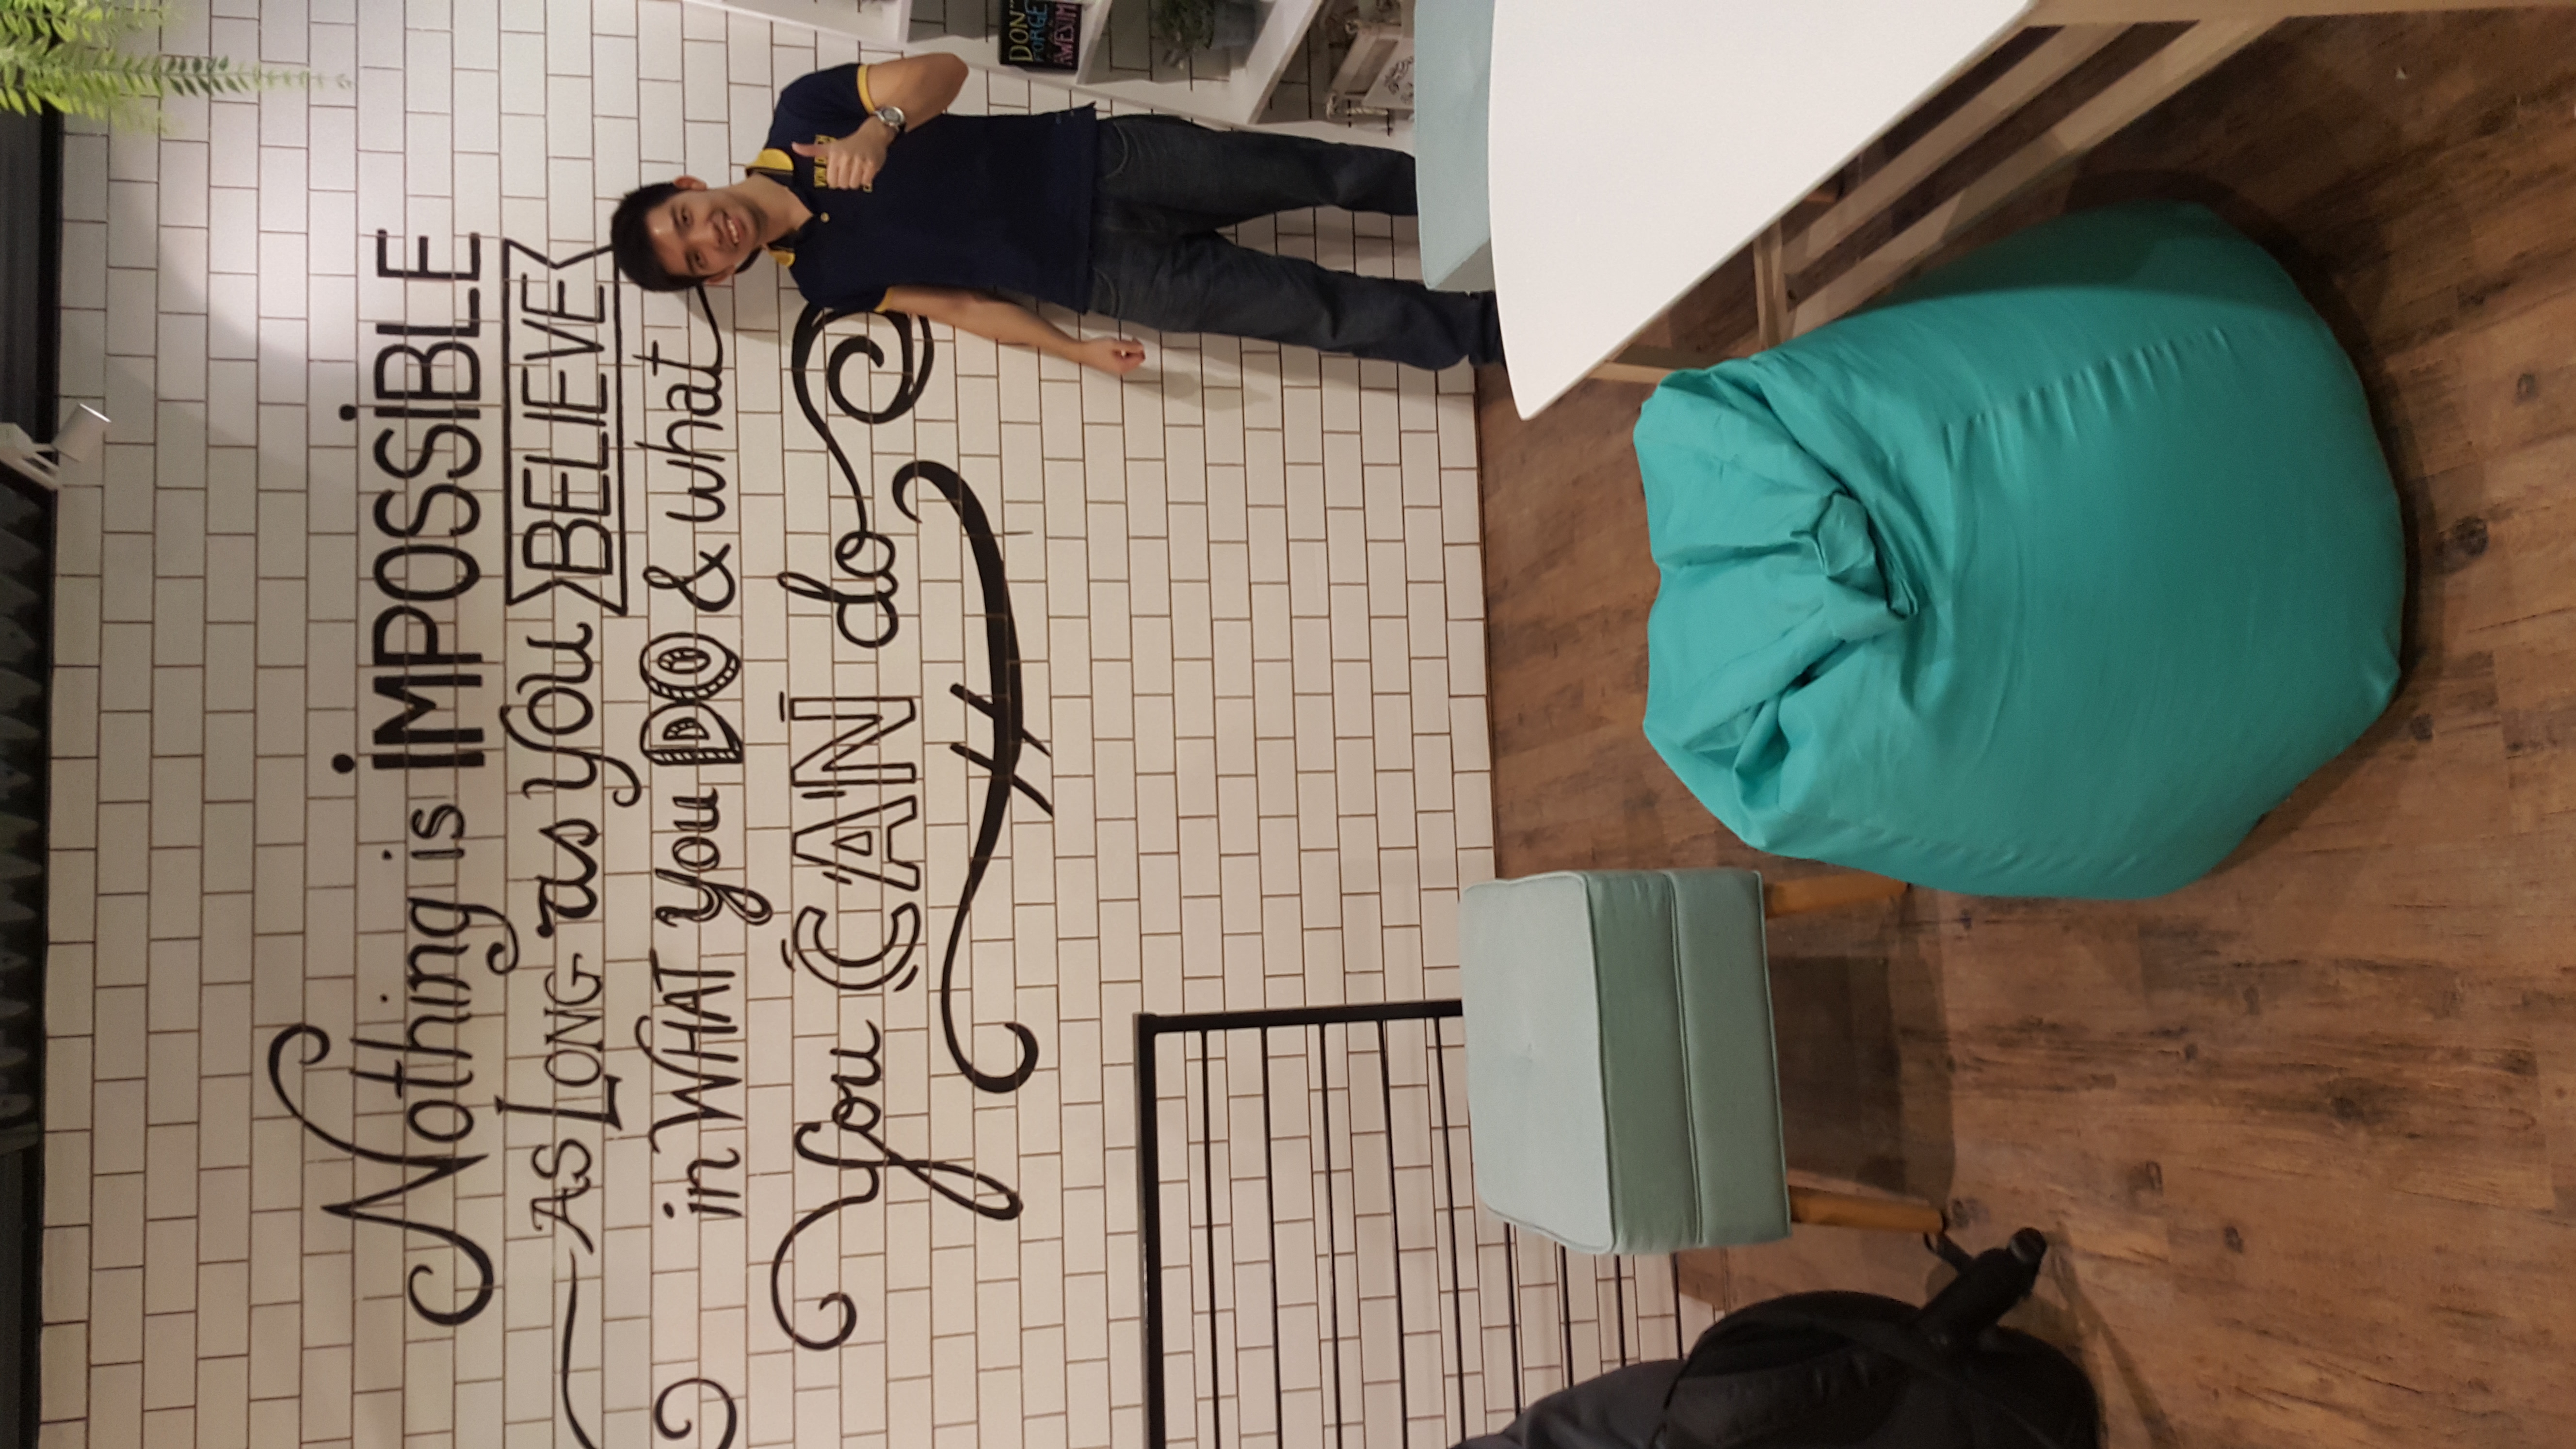 Nothing is iMPOSSiBLE
AS LONG as you BELIEVE
in WHAT you DO & what
You CAN do
VON
DON'T
FORGE
AWESOM